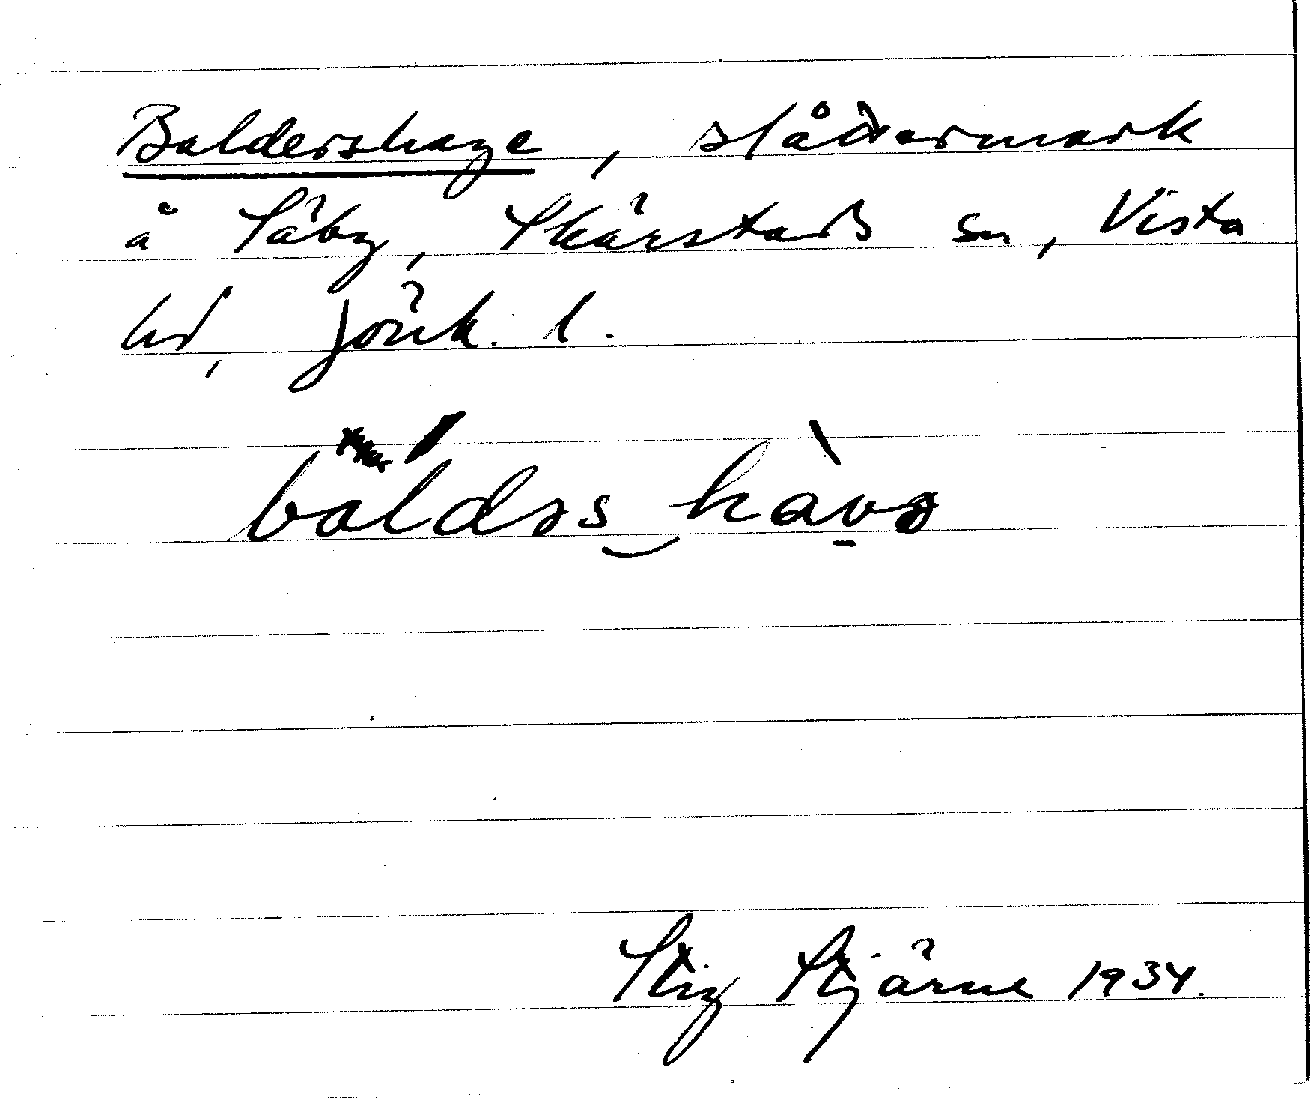 Baldershage, slåttermark
å Säby, Skärstads sn, Vista
hd, Jönk. l.
Stig Stjärne 1934.